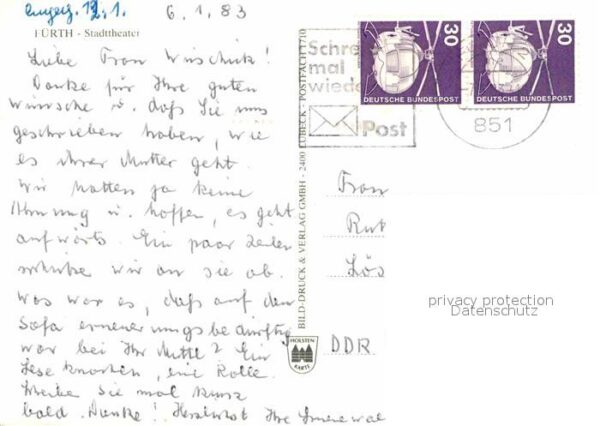 6.1.83
FÜRTH - Stadttheater
Liebe Frau
Danke für Ihre guten
Wünsche u. daß Sie uns
geschrieben haben, wie
es ihrer Mutter geht.
Wir hatten ja keine
Ahnung u. hoffen, es geht
aufwärts. Ein paar Zeilen
schicke wir an sie ab.
Was war es, daß auf den
Sofa erneuerungsbedürftig
war bei Ihr Mutti? Ein
Lese knochen, eine Rolle.
Schreiben Sie mal kurz
bald. Danke! Herzlichst Ihre
BILD-DRUCK & VERLAG GMBH - 2400 LÜBECK - POSTFACH 1710
HOLSTEN
KARTE
Schre
mal
wiede
Post
30
DEUTSCHE BUNDESPOST
30
DEUTSCHE BUNDESPOST
851
Frau
Rut
Lös
DDR
privacy protection
Datenschutz